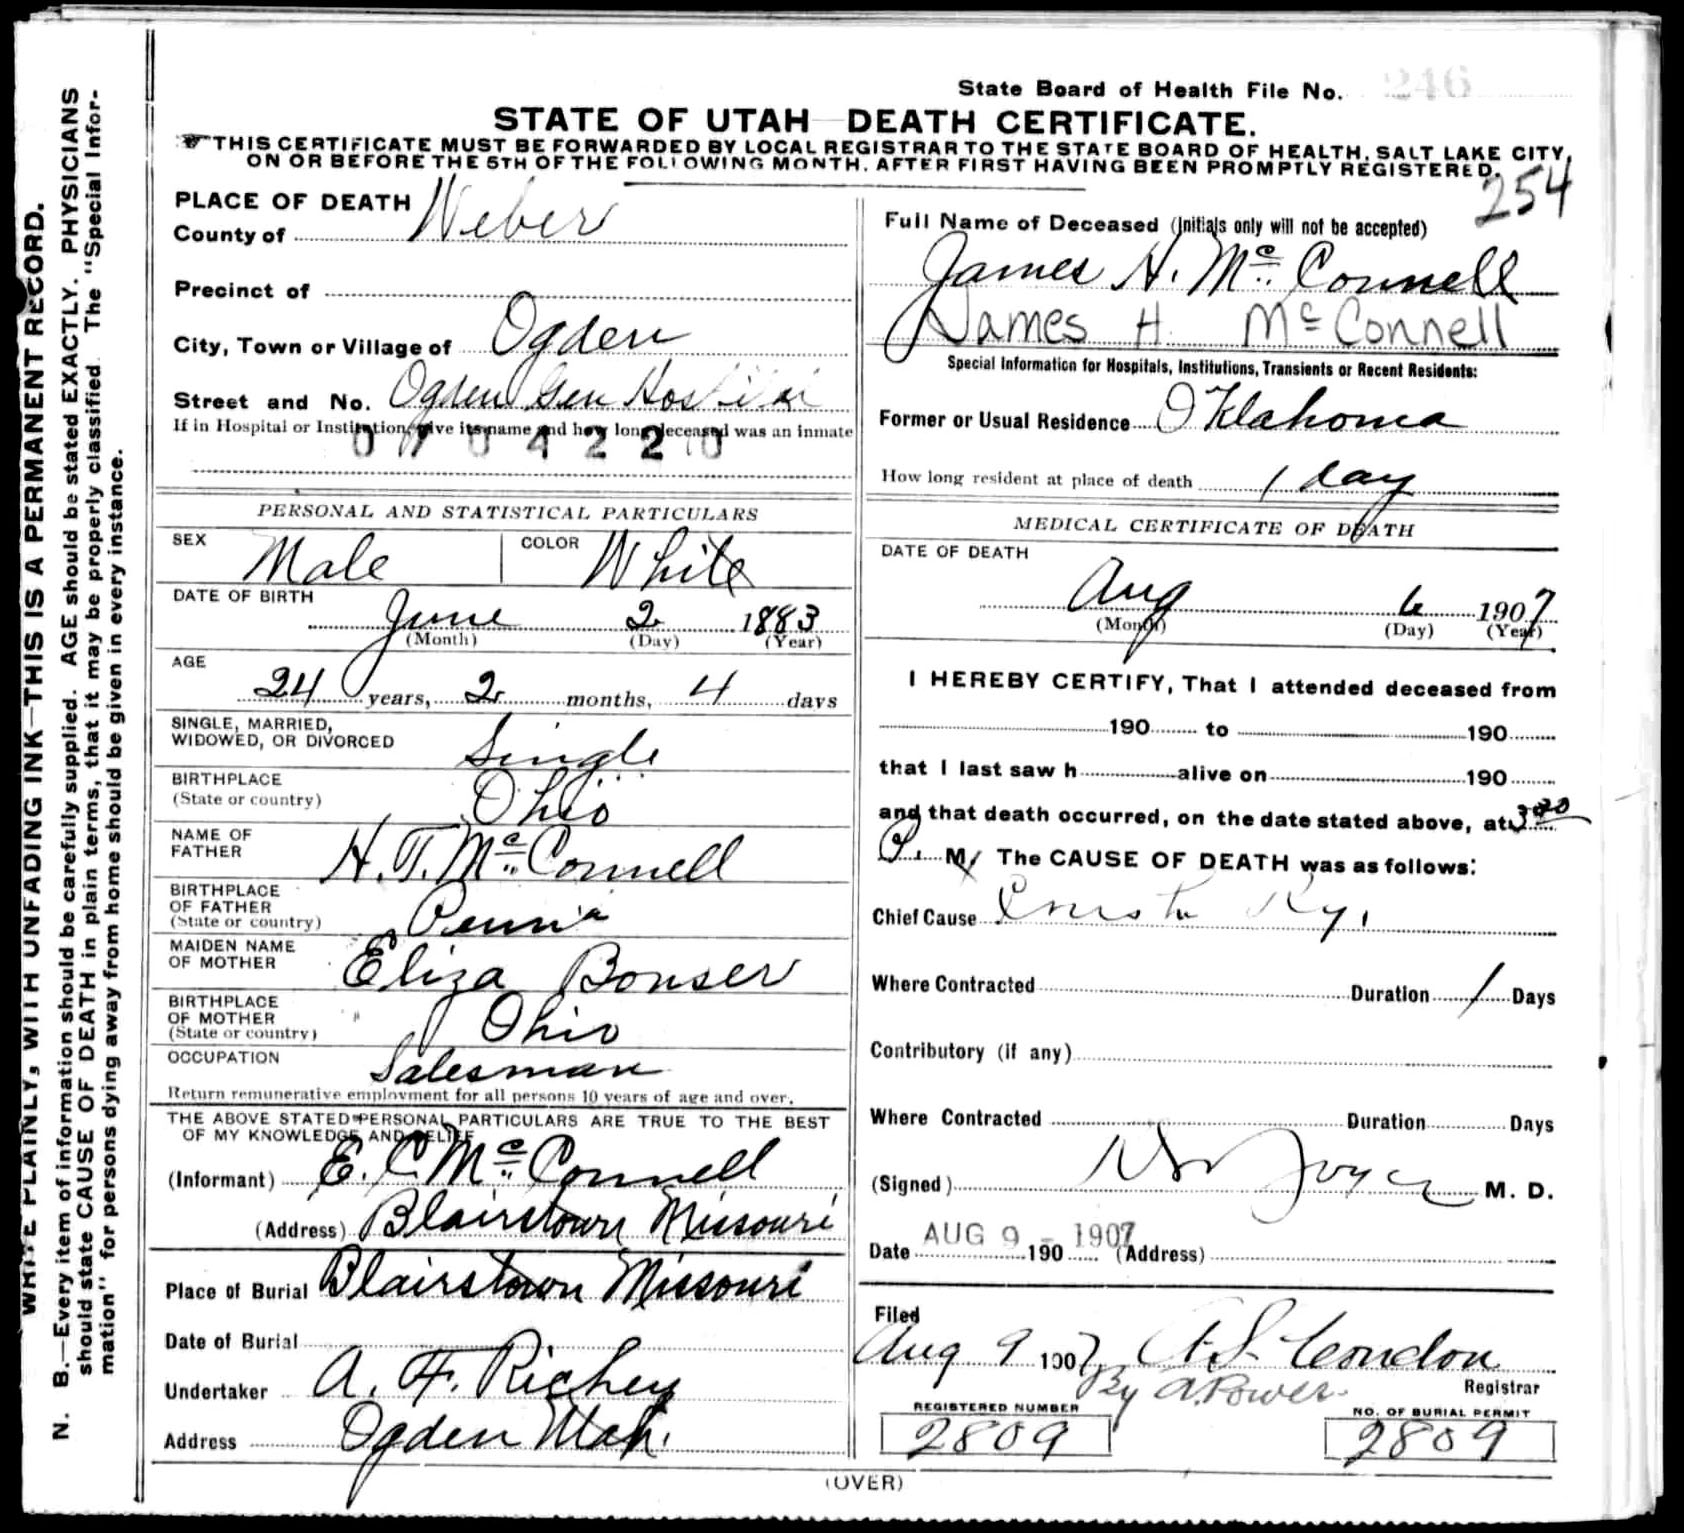 State Board of Health File No. 246
STATE OF UTAH—DEATH CERTIFICATE.
THIS CERTIFICATE MUST BE FORWARDED BY LOCAL REGISTRAR TO THE STATE BOARD OF HEALTH, SALT LAKE CITY,
ON OR BEFORE THE 5TH OF THE FOLLOWING MONTH, AFTER FIRST HAVING BEEN PROMPTLY REGISTERED.
254
WRITE PLAINLY, WITH UNFADING INK—THIS IS A PERMANENT RECORD.
N. B.—Every item of information should be carefully supplied. AGE should be stated EXACTLY. PHYSICIANS
should state CAUSE OF DEATH in plain terms, that it may be properly classified. The "Special Infor-
mation" for persons dying away from home should be given in every instance.
PLACE OF DEATH
County of Weber
Precinct of
City, Town or Village of Ogden
Street and No. Ogden Gen Hospital
If in Hospital or Institution, give its name and how long deceased was an inmate
0704220
PERSONAL AND STATISTICAL PARTICULARS
SEX Male COLOR White
DATE OF BIRTH
June 2 1883
(Month) (Day) (Year)
AGE
24 years, 2 months, 4 days
SINGLE, MARRIED,
WIDOWED, OR DIVORCED Single
BIRTHPLACE
(State or country) Ohio
NAME OF
FATHER H. T. McConnell
BIRTHPLACE
OF FATHER
(State or country) Penn'a
MAIDEN NAME
OF MOTHER Eliza Bonser
BIRTHPLACE
OF MOTHER
(State or country) Ohio
OCCUPATION Salesman
Return remunerative employment for all persons 10 years of age and over.
THE ABOVE STATED PERSONAL PARTICULARS ARE TRUE TO THE BEST
OF MY KNOWLEDGE AND BELIEF
(Informant) E. C. McConnell
(Address) Blairstown Missouri
Place of Burial Blairstown Missouri
Date of Burial
Undertaker A. F. Richey
Address Ogden Utah.
Full Name of Deceased (Initials only will not be accepted)
James H. McConnell
James H McConnell
Special Information for Hospitals, Institutions, Transients or Recent Residents:
Former or Usual Residence Oklahoma
How long resident at place of death 1 day
MEDICAL CERTIFICATE OF DEATH
DATE OF DEATH
Aug 6 1907
(Month) (Day) (Year)
I HEREBY CERTIFY, That I attended deceased from
190 to 190
that I last saw h alive on 190
and that death occurred, on the date stated above, at 3
P. M. The CAUSE OF DEATH was as follows:
Chief Cause
Where Contracted Duration 1 Days
Contributory (if any)
Where Contracted Duration Days
(Signed) Joyce M. D.
Date AUG 9 - 1907 190 (Address)
Filed
Aug 9 1907 A. S. Condon
By A. Power.
Registrar
REGISTERED NUMBER NO. OF BURIAL PERMIT
2809 2809
(OVER)